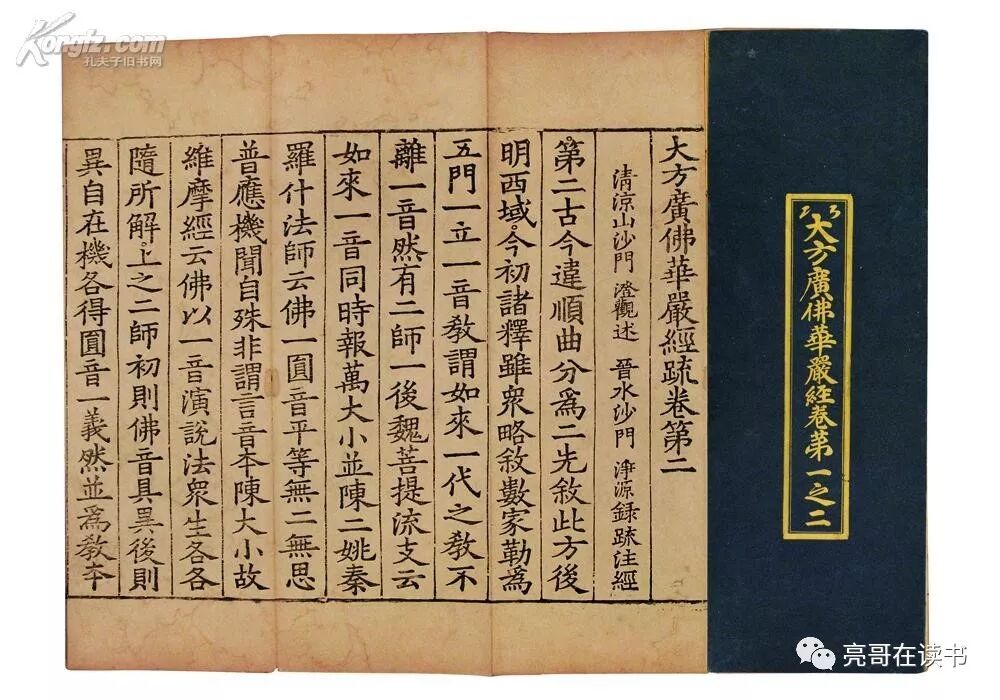 大方廣佛華嚴經卷第一之二
大方廣佛華嚴經疏卷第二
清涼山沙門 澄觀述 晉水沙門 淨源録疏注經
第二古今違順曲分為二先敘此方後
明西域今初諸釋雖衆略敘數家勒為
五門一立一音教謂如來一代之教不
離一音然有二師一後魏菩提流支云
如來一音同時報萬大小並陳二姚秦
羅什法師云佛一圓音平等無二無思
普應機聞自殊非謂言音本陳大小故
維摩經云佛以一音演說法衆生各各
隨所解上之二師初則佛音具異後則
異自在機各得圓音一義然並為教本
Kongfz.com
孔夫子旧书网
亮哥在读书